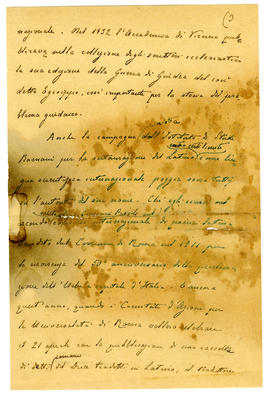 nazionale. Nel 1932 l'Accademia di Vienna pub
blicava nella collezione degli scrittori ecclesiastici
la sua edizione della Guerra di Giudea del così
detto Egesippo, così importante per la storia del pro
blema giudaico.
Anche la campagna dell'Istituto di Studi
Romani per la restaurazione del Latino come lin
gua scientifica internazionale poggia sopra tutto
su l'autorità del suo nome. Chi egli
secondo internazionale di poesia latina
bandito dal Comune di Roma nel 1911 per
la ricorrenza del 50° anniversario della proclama
zione dell'Urbe a capitale d'Italia. E ancora
quest'anno, quando il Comitato d'Azione per
la Universalità di Roma volle celebrare
il 21 aprile con la pubblicazione di una raccolta
di detti romani del Duce tradotti in Latino, il traduttore